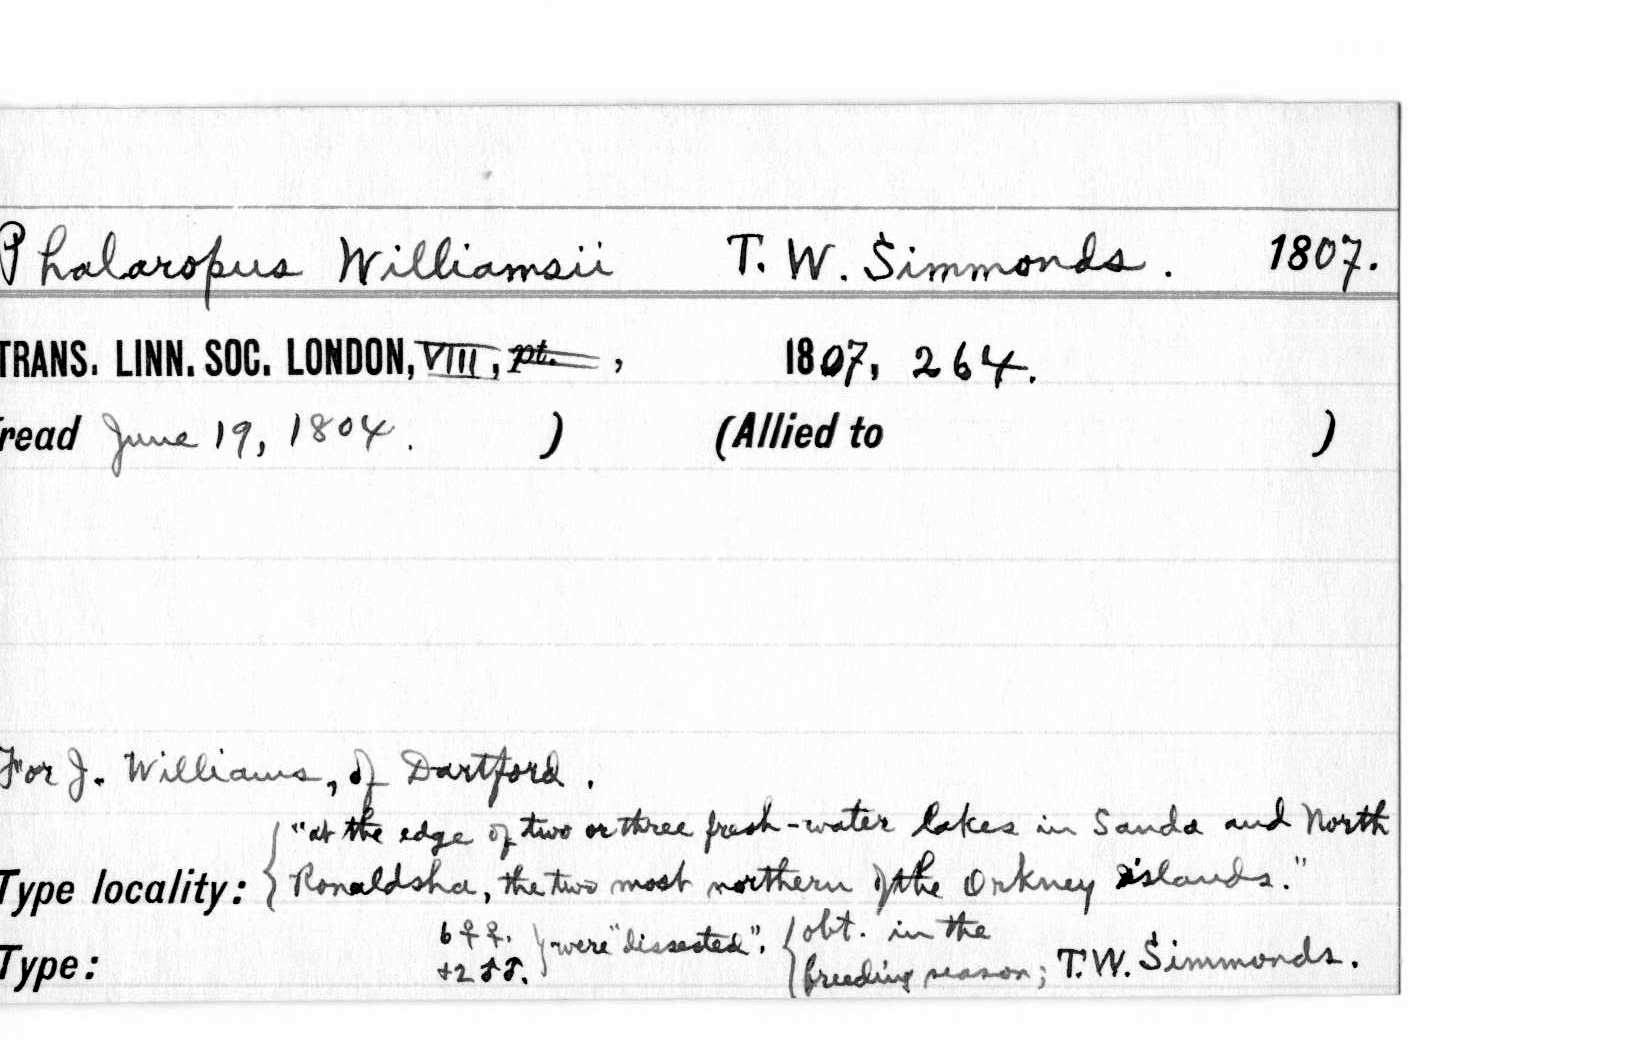 Phalaropus Williamsii T. W. Simmonds. 1807.
TRANS. LINN. SOC. LONDON, VIII, pt. , 1807, 264.
(read June 19, 1804. ) (Allied to )
For J. Williams, of Dartford.
"at the edge of two or three fresh-water lakes in Sanda and North
Type locality: Ronaldsha, the two most northern of the Orkney islands."
6 ♀♀. obt. in the
Type: +2 ♂♂. were "dissected". breeding season; T.W. Simmonds.